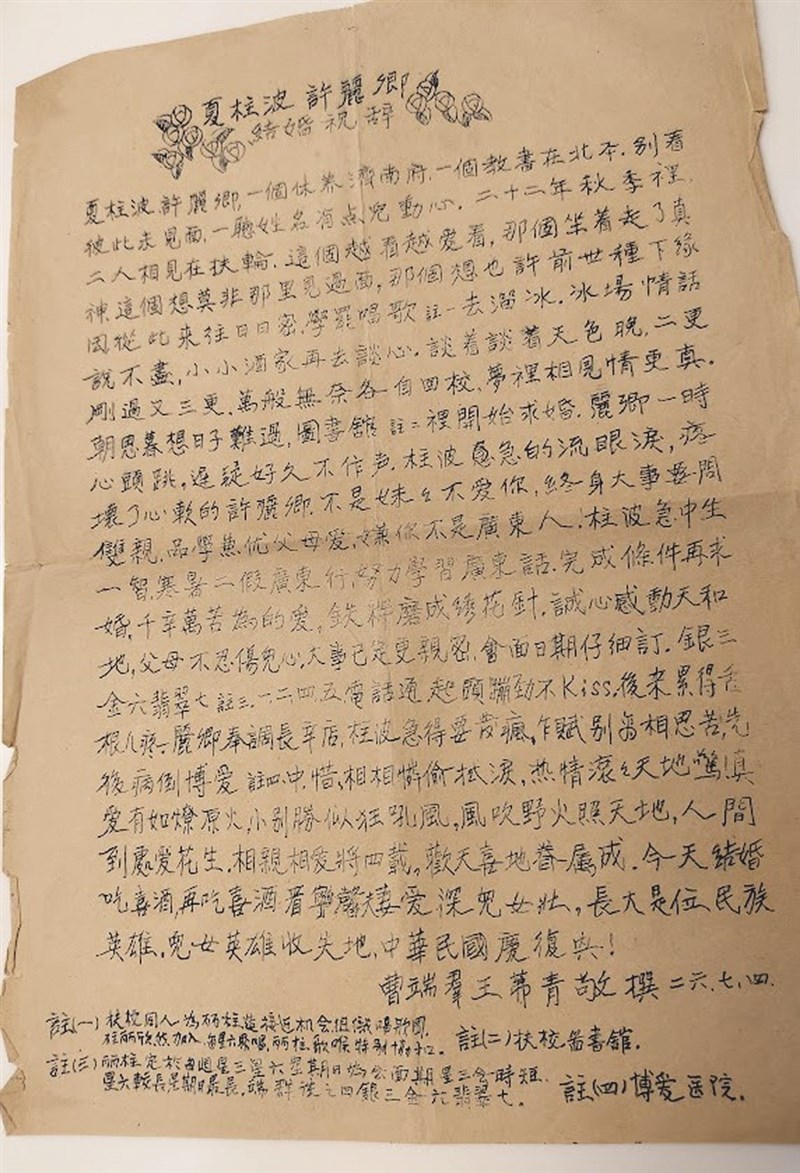 夏柱波 許麗卿
結婚祝辞
夏柱波、許麗卿,一個休养濟南府,一個教書在北平.别看
彼此未見面,一聽姓名有点兒動心.二十二年秋季裡,
二人相見在扶輪.這個越看越愛看,那個坐着起了真
神.這個想莫非那里見過面,那個想也許前世種下緣
因.從此来往日日密,學罷唱歌註一去溜冰.冰場情話
說不盡,小小酒家再去談心.談着談着天色晚,二更
剛過又三更.萬般無奈各自回校,夢裡相見情更真.
朝思暮想日子難過,圖書舘註二裡開始求婚.麗卿一時
心頭跳,遲疑好久不作声.柱波急的流眼淚,疼
壞了心軟的許麗卿.不是妹々不愛你,終身大事要問
雙親.品學兼优父母愛,嫌你不是廣東人.柱波急中生
一智,寒暑二假廣東行,努力學習廣東話.完成條件再求
婚,千辛萬苦為的愛,鉄杵磨成綉花針.誠心感動天和
地,父母不忍傷兒心.大事已定更親密,會面日期仔細訂.銀三
金六翡翠七註三.一、二、四、五、電話通,起頭蹦勁不Kiss,後来累得舌
根儿疼.麗卿奉調長辛店,柱波急得要发瘋,乍賦别离相思苦,先
後病倒博愛註四中.惜相相憐偷拭淚,热情滚々天地驚!真
愛有如燎原火,小别勝似狂吼風,風吹野火照天地,人間
到處愛花生.相親相愛將四載,歡天喜地眷属成.今天結婚
吃喜酒,再吃喜酒看寧馨.夫妻愛深兒女壯,長大是位民族
英雄.兒女英雄收失地,中華民國慶復興!
曹端羣王蒂青敬撰 二六、七、四.
註(一)扶校同人為丽柱造接近机会組織唱歌團,
柱丽欣然加入,每星六歌唱,丽柱歌喉特别
註(二)扶校圖書舘.
註(三)丽柱定於每週星三星六星期日為会面期星三会時短,
星六較長星期日最長.端群说之曰銀三金六翡翠七.
註(四)博爱医院.